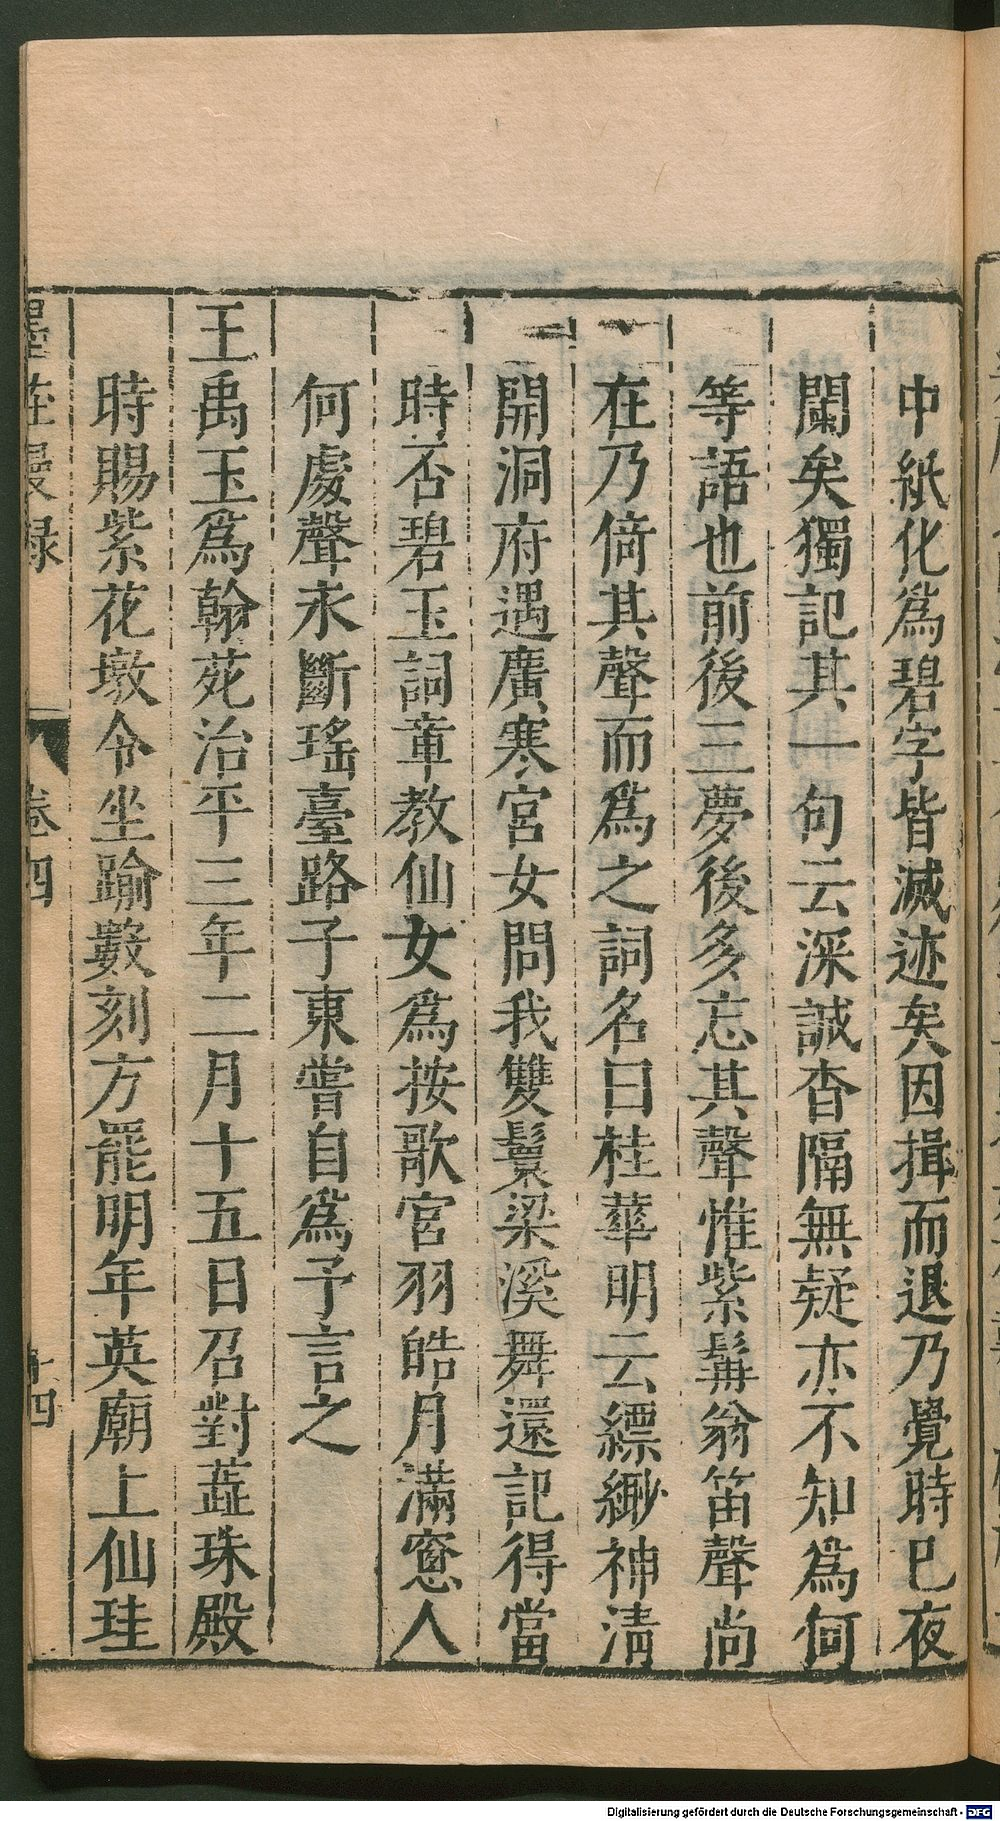 中紙化爲碧字皆滅迹矣因揖而退乃覺時已夜
闌矣獨記其一句云深誠杳隔無疑亦不知爲何
等語也前後三夢後多忘其聲惟紫髯翁笛聲尚
在乃倚其聲而爲之詞名曰桂華明云縹緲神清
開洞府遇廣寒宮女問我雙鬟梁溪舞還記得當
時否碧玉詞章教仙女爲按歌宮羽皓月滿窻人
何處聲永斷瑤臺路子東嘗自爲予言之
王禹玉爲翰苑治平三年二月十五日召對蘂珠殿
時賜紫花墩令坐踰數刻方罷明年英廟上仙珪
墨莊漫録 卷四 十四
Digitalisierung gefördert durch die Deutsche Forschungsgemeinschaft - DFG